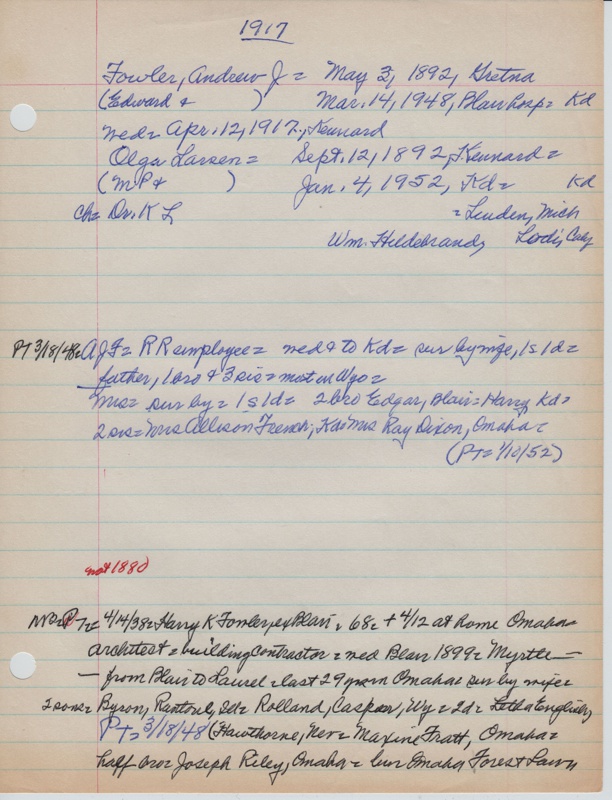 1917
Fowler, Andrew J = May 3, 1892, Gretna
(Edward & ) Mar. 14, 1948, Blair hosp = Kd
wed = Apr. 12, 1917, Kennard
Olga Larsen = Sept. 12, 1892, Kennard =
(M P & ) Jan. 4, 1952, Kd = Kd
ch = Dr. K L = Linden, Mich
Wm. Hildebrand, Lodi, Caly
PT 3/18/48 = A J F = R R employee = wed & to Kd = sur by wife, 1s 1d =
father, 1 bro & 3 sis = most on Wyo =
Mrs = sur by = 1s 1d = 2 bro Edgar, Blair = Harry Kd =
2 sis = Mrs Allison French, Kd = Mrs Ray Dixon, Omaha =
(PT = 1/10/52)
not 1880
PT = 4/14/38 = Harry K Fowler, ex Blair, 68 = + 4/12 at home Omaha =
architect = building contractor = wed Blair 1899 = Myrtle —
— from Blair to Laurel = last 29 yr on Omaha = sur by wife =
2 sons = Byron, Rantoul, Ill = Rolland, Casper, Wy = 2d = Letha English,
PT = 3/18/48 (Hawthorne, Nev = Maxine Fratt, Omaha =
half bro = Joseph Riley, Omaha = bur Omaha Forest Lawn